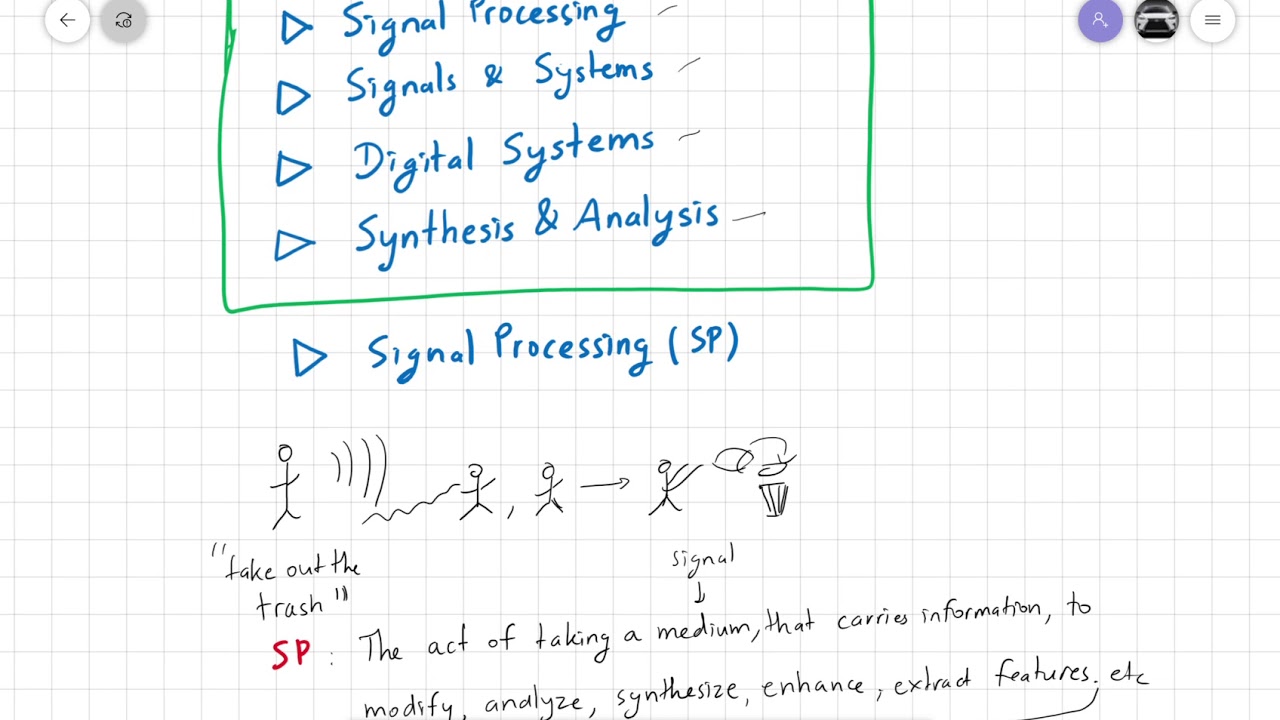 Signal Processing
Signals & Systems
Digital Systems
Synthesis & Analysis
Signal Processing (SP)
"take out the
trash"
signal
SP : The act of taking a medium, that carries information, to
modify, analyze, synthesize, enhance, extract features. etc